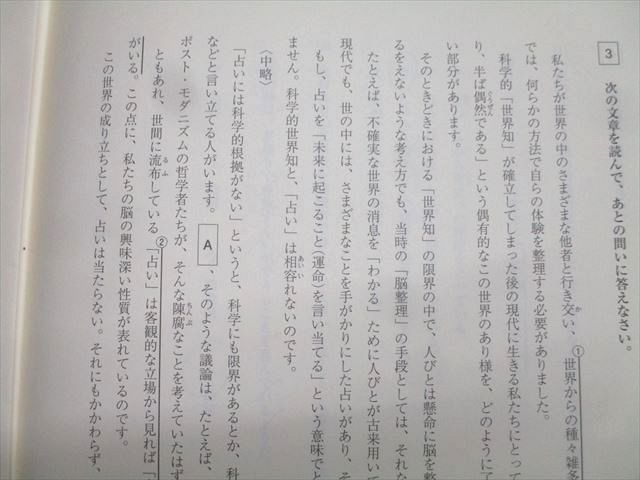 3 次の文章を読んで、あとの問いに答えなさい。
私たちが世界の中のさまざまな他者と行き交い、①世界からの種々雑多
では、何らかの方法で自らの体験を整理する必要がありました。
科学的「世界知」が確立してしまった後の現代に生きる私たちにとって
り、半ば偶然である」という偶有的なこの世界のあり様を、どのように了
い部分があります。
そのときどきにおける「世界知」の限界の中で、人びとは懸命に脳を整
るをえないような考え方でも、当時の「脳整理」の手段としては、それな
たとえば、不確実な世界の消息を「わかる」ために人びとが古来用いて
現代でも、世の中には、さまざまなことを手がかりにした占いがあり、そ
もし、占いを「未来に起こること（運命）を言い当てる」という意味でと
ません。科学的世界知と、「占い」は相容れないのです。
〈中略〉
「占いには科学的根拠がない」というと、科学にも限界があるとか、科
などと言い立てる人がいます。 A 、そのような議論は、たとえば、
ポスト・モダニズムの哲学者たちが、そんな陳腐なことを考えていたはず
ともあれ、世間に流布している②「占い」は客観的な立場から見れば「
がいる。この点に、私たちの脳の興味深い性質が表れているのです。
この世界の成り立ちとして、占いは当たらない。それにもかかわらず、